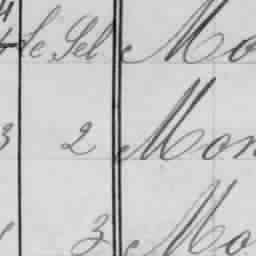 Le Sel Mo
3 2 Mon
3 Mo